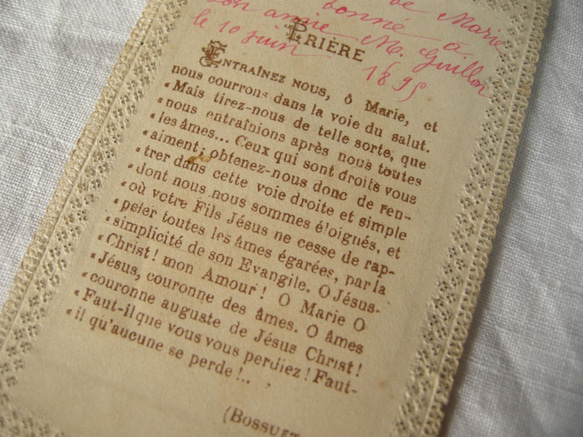 de Marie
donné à
mon amie M. Guillon
le 10 Juin 1895
PRIÈRE
ENTRAÎNEZ NOUS, ô Marie, et
nous courrons dans la voie du salut.
« Mais tirez-nous de telle sorte, que
« nous entraînions après nous toutes
« les âmes... Ceux qui sont droits vous
« aiment; obtenez-nous donc de ren-
« trer dans cette voie droite et simple
« dont nous nous sommes éloignés, et
« où votre Fils Jésus ne cesse de rap-
« peler toutes les âmes égarées, par la
« simplicité de son Evangile. O Jésus-
« Christ! mon Amour! O Marie O
« Jésus, couronne des âmes. O âmes
« couronne auguste de Jésus Christ!
« Faut-il que vous vous perdiez! Faut-
« il qu'aucune se perde!...
(BOSSUET